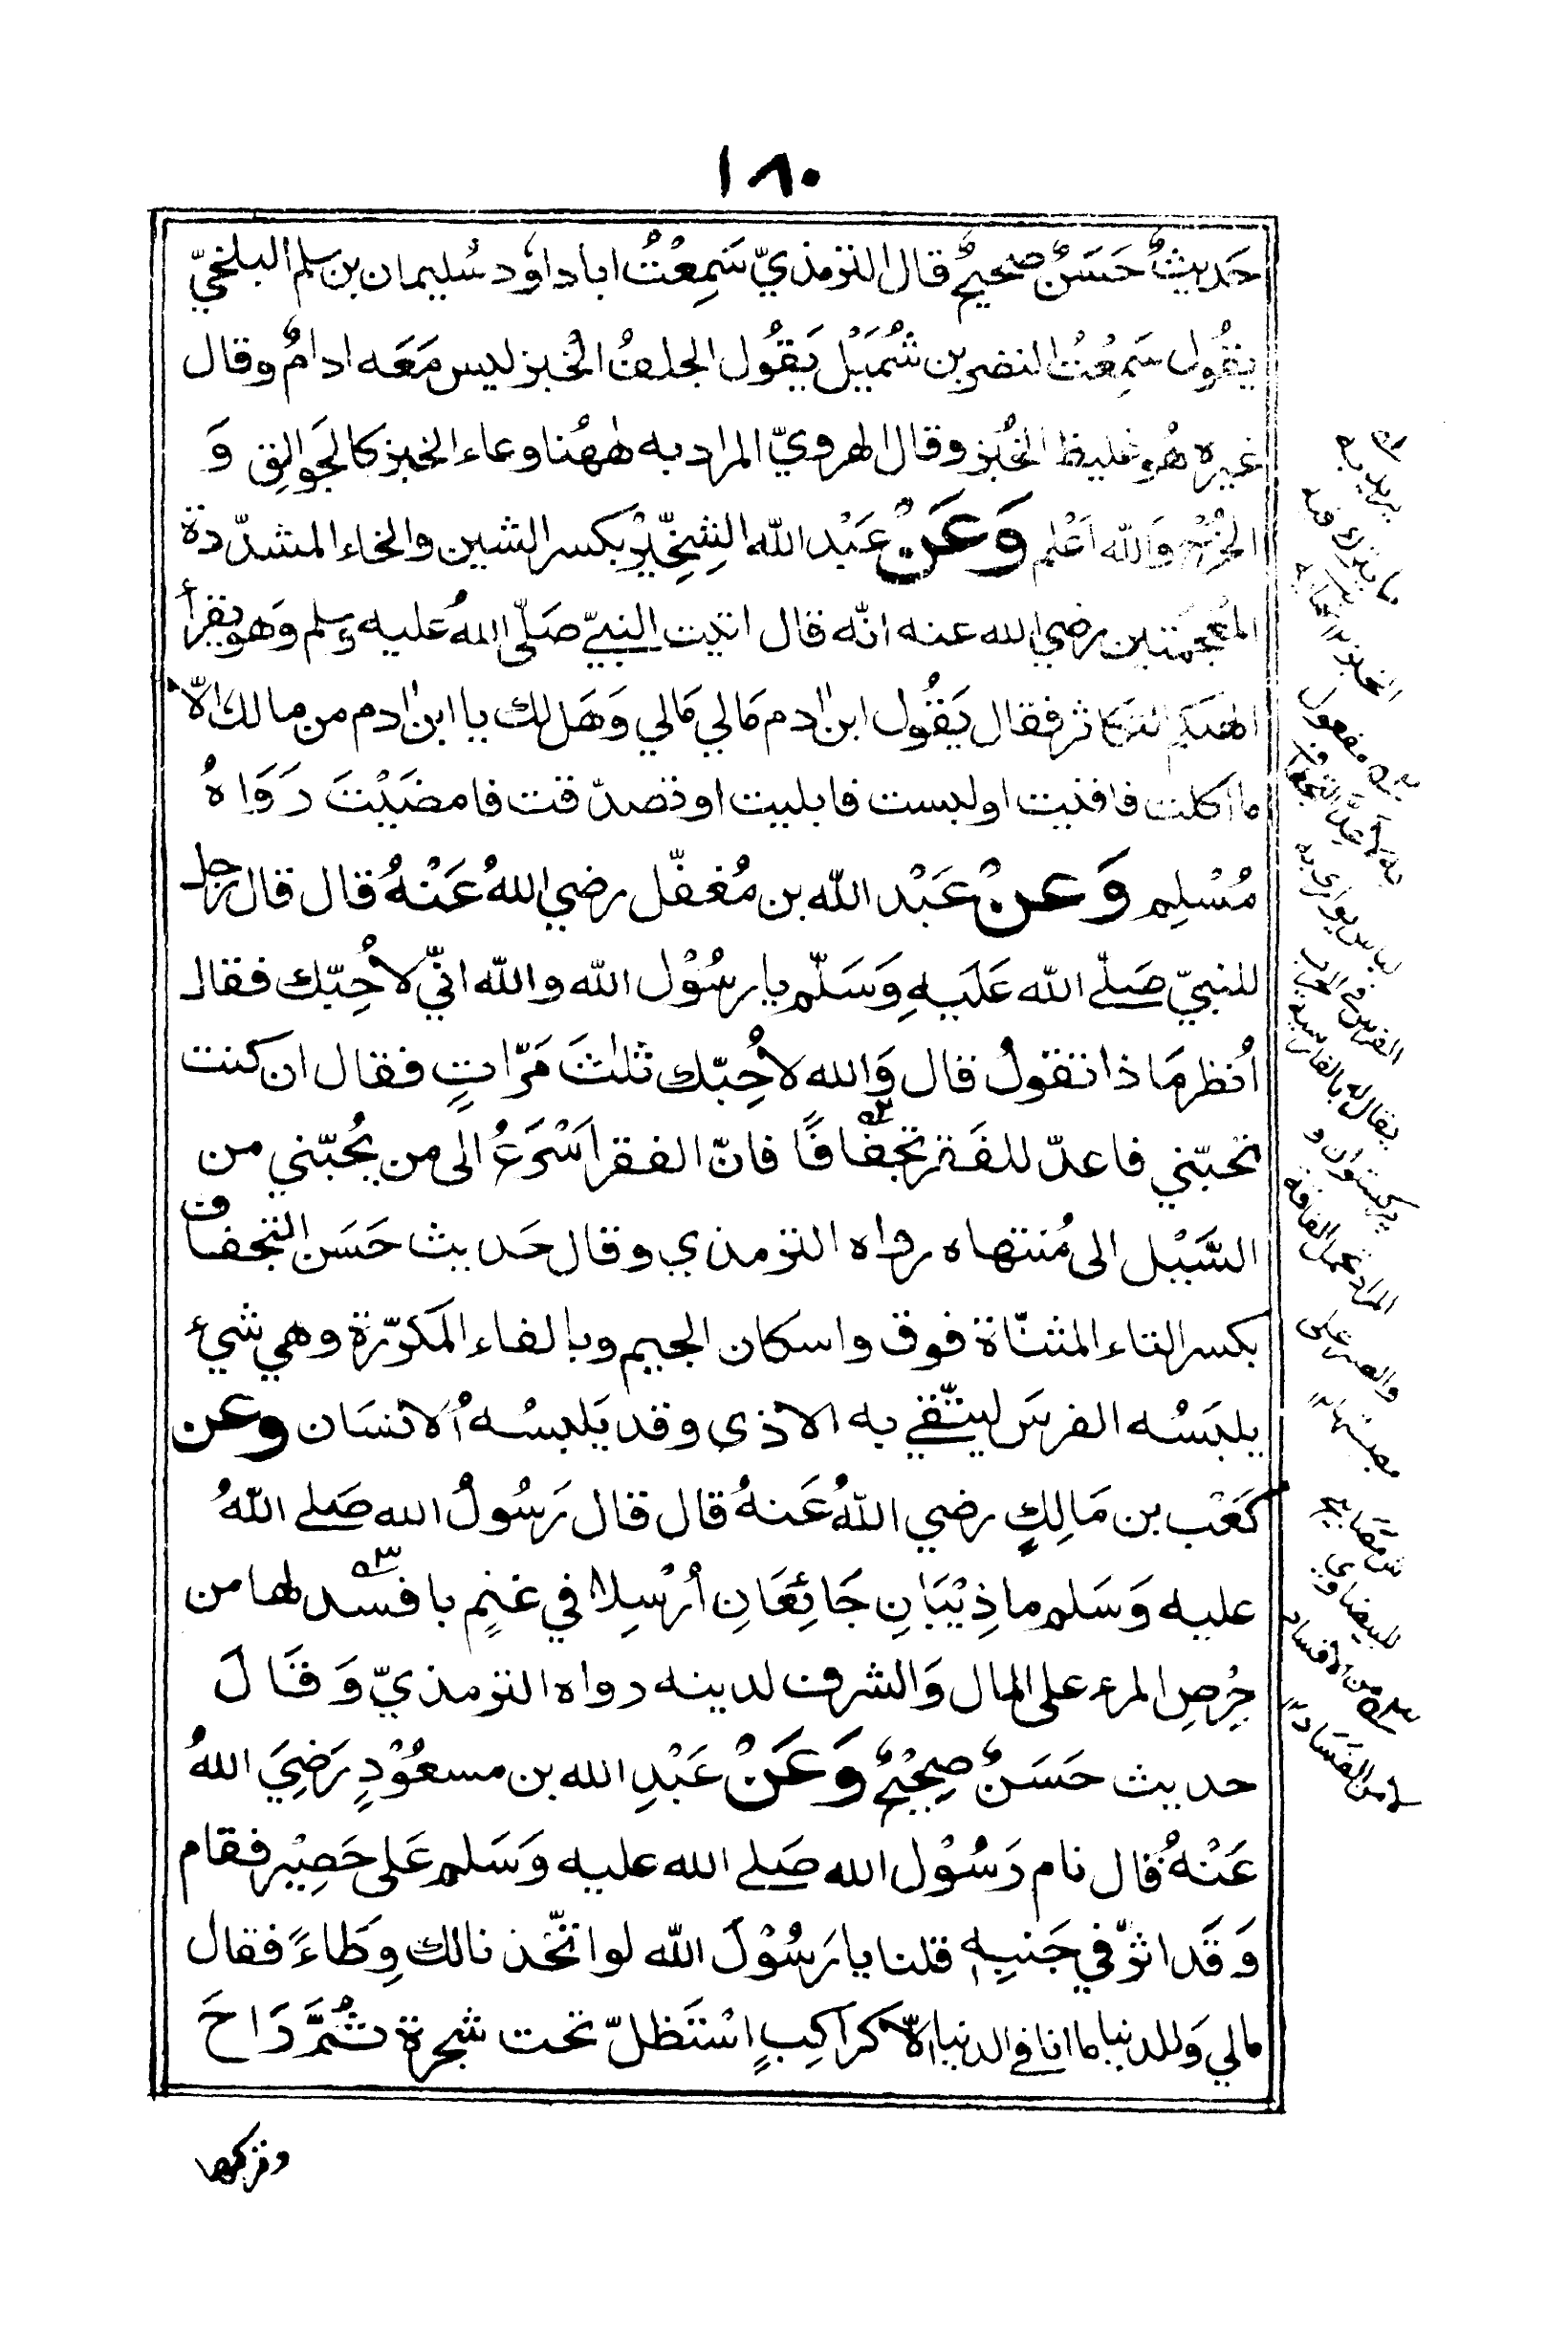 ١٨٠
حَدِيثٌ حَسَنٌ صحيحٌ قال الترمذيّ سَمِعْتُ ابا داوٗد سُليمان بن سلم البلخيّ
يقُول سَمِعْتُ النضر بن شُمَيْل يَقُول الجلفُ الخُبز ليس مَعَه ادامٌ وقال
غيره هُو غليظ الخُبْز وقال الهرويّ المراد به هٰهُنا وعاء الخبز كالجَوالِق وَ
الخُرْج وَالله اَعْلم وَعَنْ عَبْد الله الشِخِّيْر بكسر الشين والخاء المشدّدة
المُعْجَمَتين رضي الله عنه انّه قال اتيت النبيّ صَلّى اللهُ عليه وسلم وَهو يقرأ
الهٰىكم التكاثر فقال يَقُول ابن اٰدم مَالي مَالي وَهَل لك يا ابن اٰدم من مالك الّا
ما اكلت فافنيت او لبست فابليت او تصدّقت فامضَيْتَ رَوَاهُ
مُسْلِم وَعنْ عَبْد الله بن مُغفّل رضي اللهُ عَنْهُ قال قال رجل
للنبيّ صَلّے الله عَلَيهِ وَسَلّم يا رسُوْل الله والله انّي لاُحِبّك فقال
اُنظر مَا ذا تقولُ قال وَالله لاُحِبّك ثلٰثَ مَرّاتٍ فقال ان كنت
تحبّني فاعدّ للفَقر تجفَافًا فانّ الفقر اَسْرَعُ الى من يُحبّني من
السَّيْل الى مُنتهاه رواه الترمذي وقال حَديث حَسَن التجفاف
بكسر التاء المثنّاة فوق واسكان الجيم وبالفاء المكرّرة وهي شيء
يلبَسُه الفرسَ ليتّقي به الاذى وقد يَلبسُه الانسَان وعن
كَعْب بن مَالِكٍ رضي اللهُ عَنهُ قال قال رَسُولُ الله صَلے اللهُ
عليه وَسَلم ما ذِئْبَانِ جَائِعَانِ اُرْسِلا في غنمٍ بافسد لها من
حِرْصِ المرء على المال وَالشرف لدينه رواه الترمذيّ وَقَالَ
حديث حَسَنٌ صحِيْحٌ وَعَنْ عَبْدِ الله بن مسعُوْدٍ رَضِيَ اللهُ
عَنْهُ قال نام رَسُوْل الله صَلے الله عليه وَسَلم عَلى حَصِيْر فقام
وَقَد اثرّ في جَنبِهٖ قلنا يا رَسُوْلَ الله لو اتّخذنا لك وِطَاءً فقال
مالي وَللدنيا ما انا في الدنيا الّا كراكِبٍ اسْتَظلّ تحت شجرة ثُمَّ رَاحَ
وتركها
يريد به
ما يترك فيه
الخبز
مفعول
لباس يوارى به
الفرس في الحرب
يقال له بالفارسية
بركستوان و
المراد تحمل الفاقة
والصبر على
للبيضاوي
من الافساد
لا من الفَسَاد